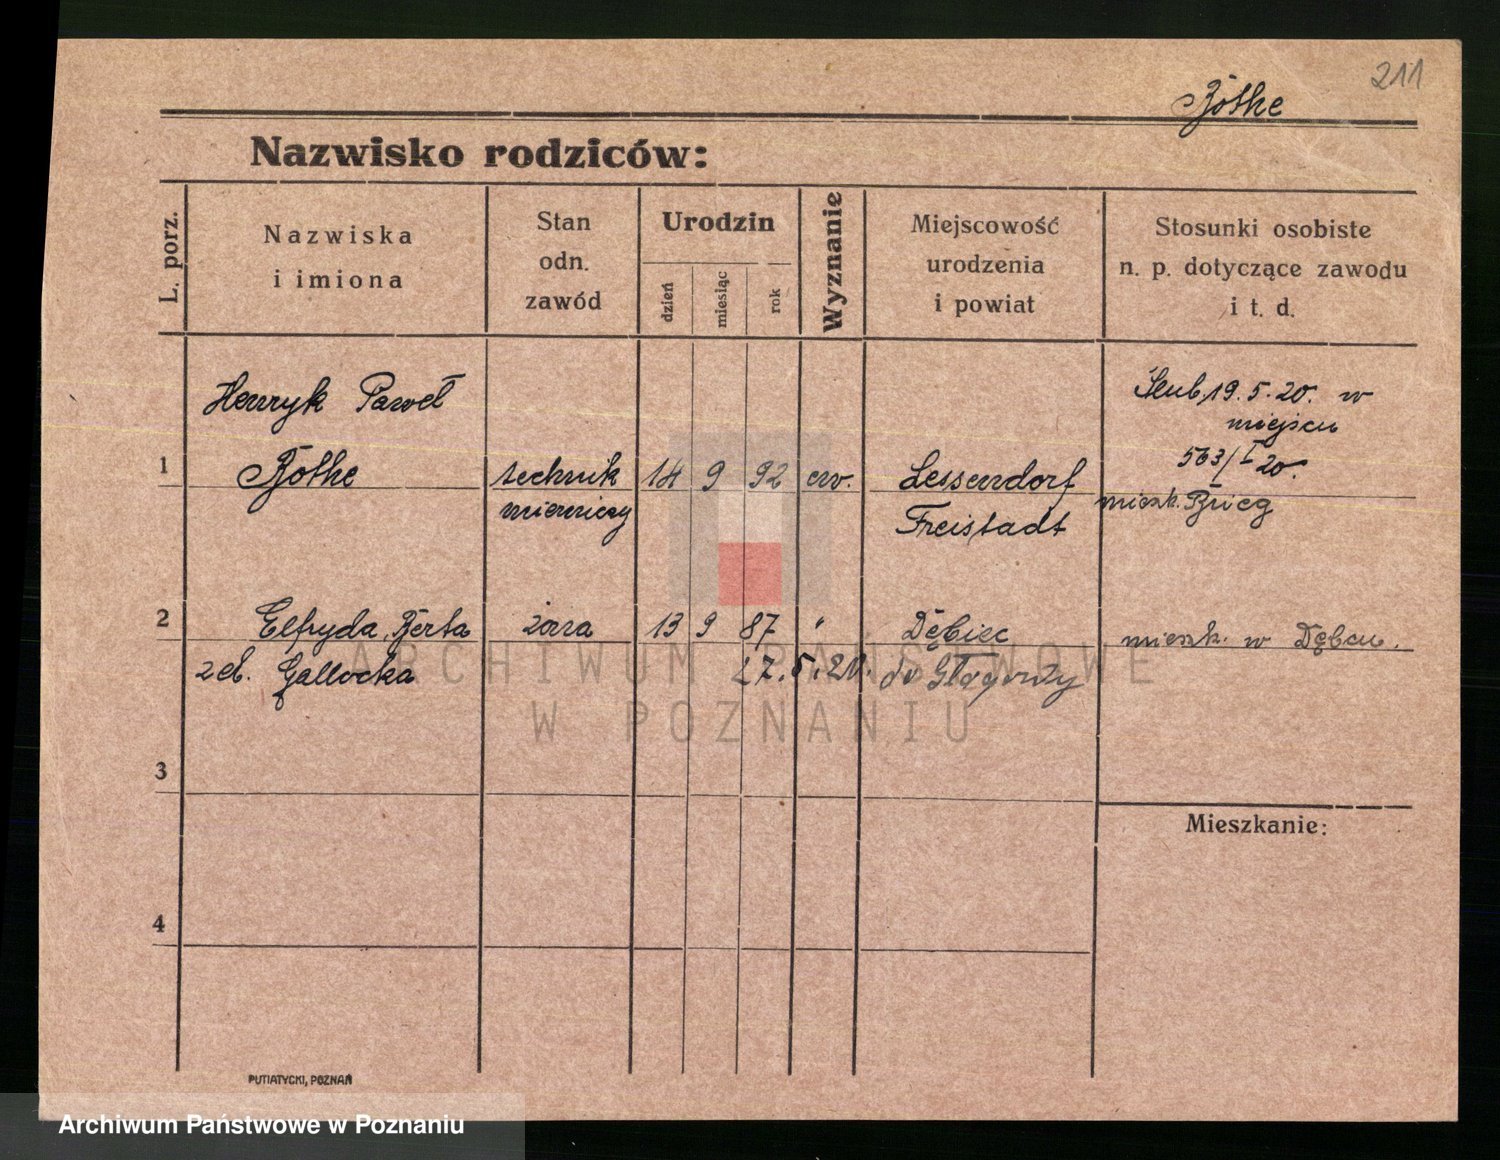 211
Röthe
Nazwisko rodziców:
L. porz.
Nazwiska
i imiona
Stan
odn.
zawód
Urodzin
dzień
miesiąc
rok
Wyznanie
Miejscowość
urodzenia
i powiat
Stosunki osobiste
n. p. dotyczące zawodu
i t. d.
Henryk Paweł
Ślub 19.5.20. w
miejscu
563/I 20.
1 Röthe technik 14 9 92 ew. Lessendorf
mierniczy Freistadt mieszk. Brieg
2 Elfryda, Berta żona 13 9 87 " Dębiec mieszk. w Dębcu.
zd. Gallocka 27.5.20. do Głogowy
ARCHIWUM PAŃSTWOWE
W POZNANIU
3
Mieszkanie:
4
PUTIATYCKI, POZNAŃ
Archiwum Państwowe w Poznaniu